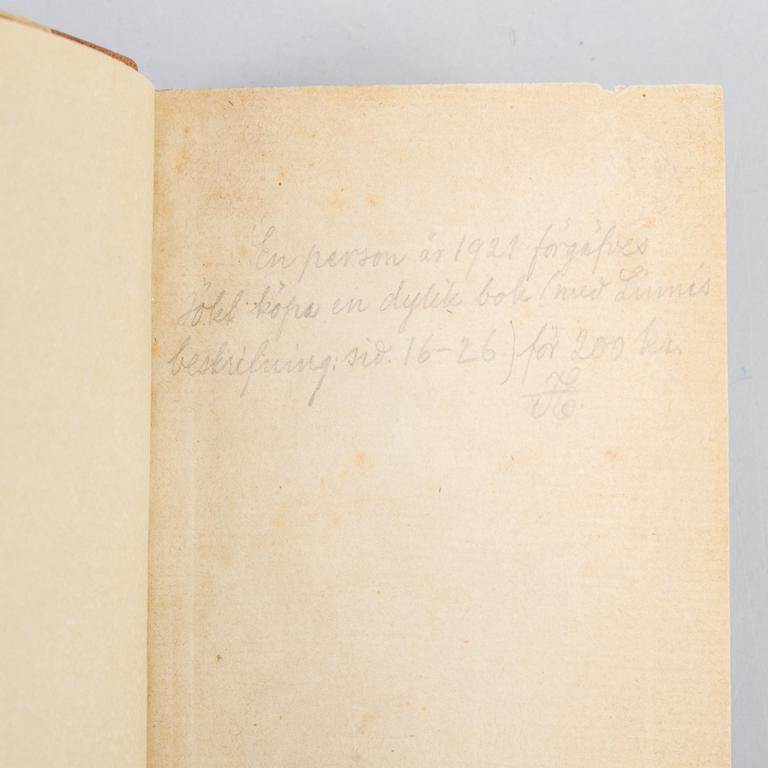 En person år 1921 förgäfves
sökt köpa en dylik bok (med Linnés
beskrifning: sid. 16-26) för 200 kr.